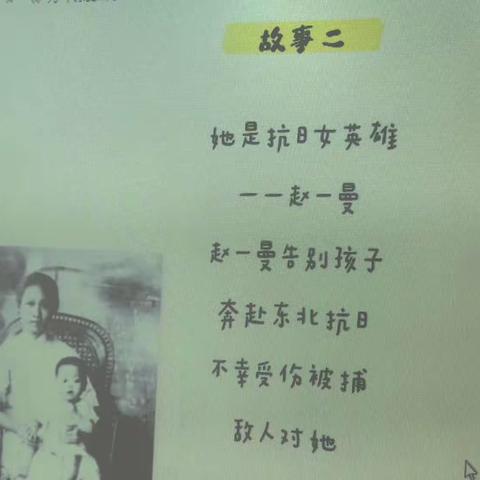 故事二
她是抗日女英雄
一一赵一曼
赵一曼告别孩子
奔赴东北抗日
不幸受份被捕
敌人对她